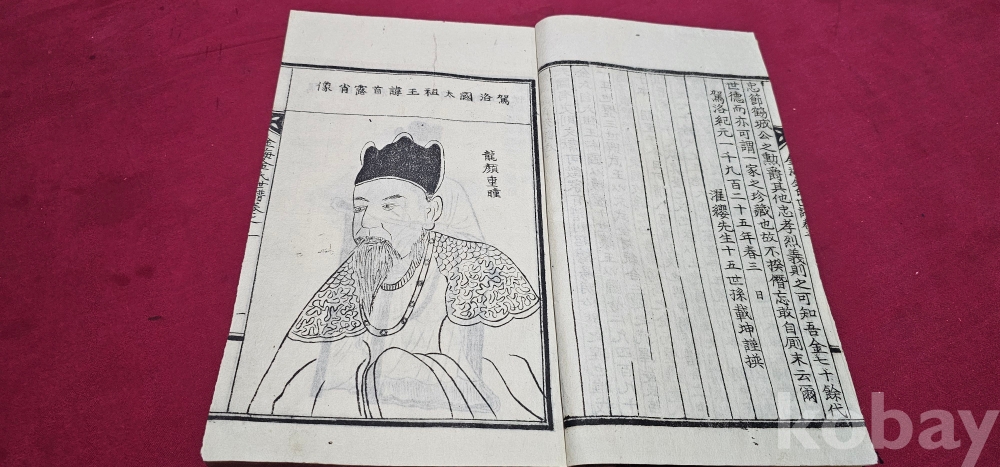 忠節鶴城公之勳爵其他忠孝烈義則之可知吾金七十餘代
世德而亦可謂一家之珍藏也故不揆僭忘敢自厠末云爾
駕洛紀元一千九百二十五年春三 日
濯纓先生十五世孫載坤謹撰
駕洛國太祖王諱首露肖像
龍顔重瞳
金海金氏世譜卷之一
kobay